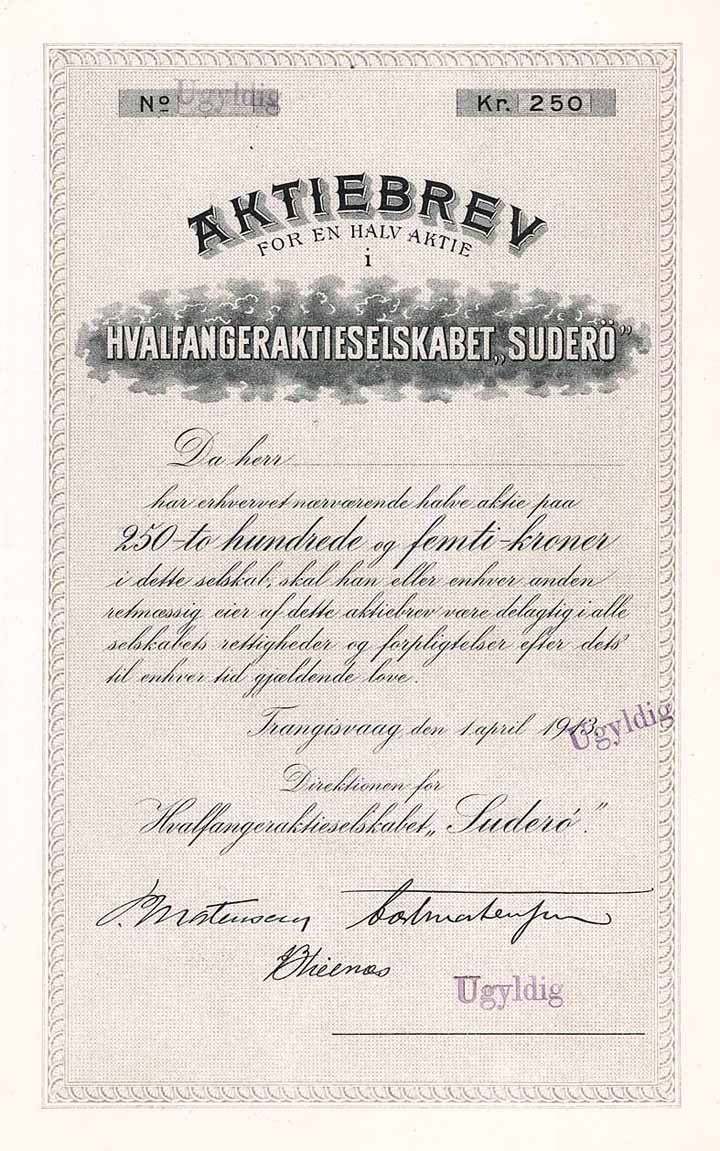 No Ugyldig
Kr. 250
AKTIEBREV
FOR EN HALV AKTIE
i
HVALFANGERAKTIESELSKABET „SUDERÖ"
Da herr
har erhvervet nærværende halve aktie paa
250-to hundrede og femti-kroner
i dette selskab, skal han eller enhver anden
retmæssig eier af dette aktiebrev være delagtig i alle
selskabets rettigheder og forpligtelser efter dets
til enhver tid gjældende love.
Trangisvaag, den 1 april 1913.
Ugyldig
Direktionen for
Hvalfangeraktieselskabet „Suderö".
Ugyldig